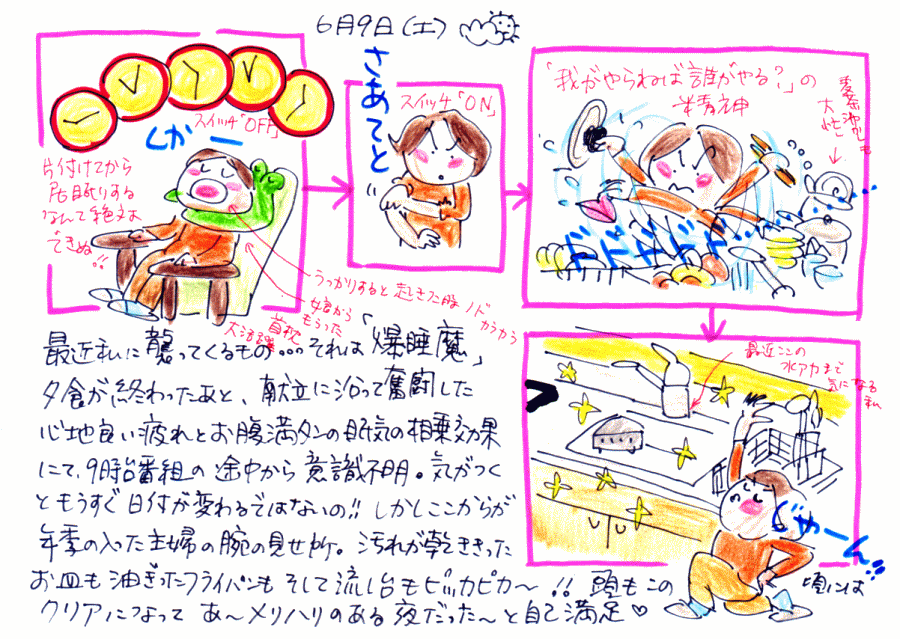 6月9日(土)
スイッチ「OFF」
くかー
片付けてから
居眠りする
なんて絶対
できぬ!!
うっかりすると起きた時ノド
カラカラ
娘から
もらった
首枕
大活躍
さあてと
スイッチ「ON」
「我がやらねば誰がやる?」の
精神
大忙し
ドドドドド
最近ここの
水アカまで
気になる
私
じゃーん!!
最近私に襲ってくるもの…それは「爆睡魔」
夕食が終わったあと、献立に沿って奮闘した
心地良い疲れとお腹満タンの眠気の相乗効果
にて、9時台番組の途中から意識不明。気がつく
ともうすぐ日付が変わるではないの!!しかしここからが
年季の入った主婦の腕の見せ所。汚れが乾ききった
お皿も油ぎったフライパンもそして流し台もビッカピカ〜!!頭もこの
頃には
クリアになって あ〜メリハリのある夜だった〜と自己満足♡